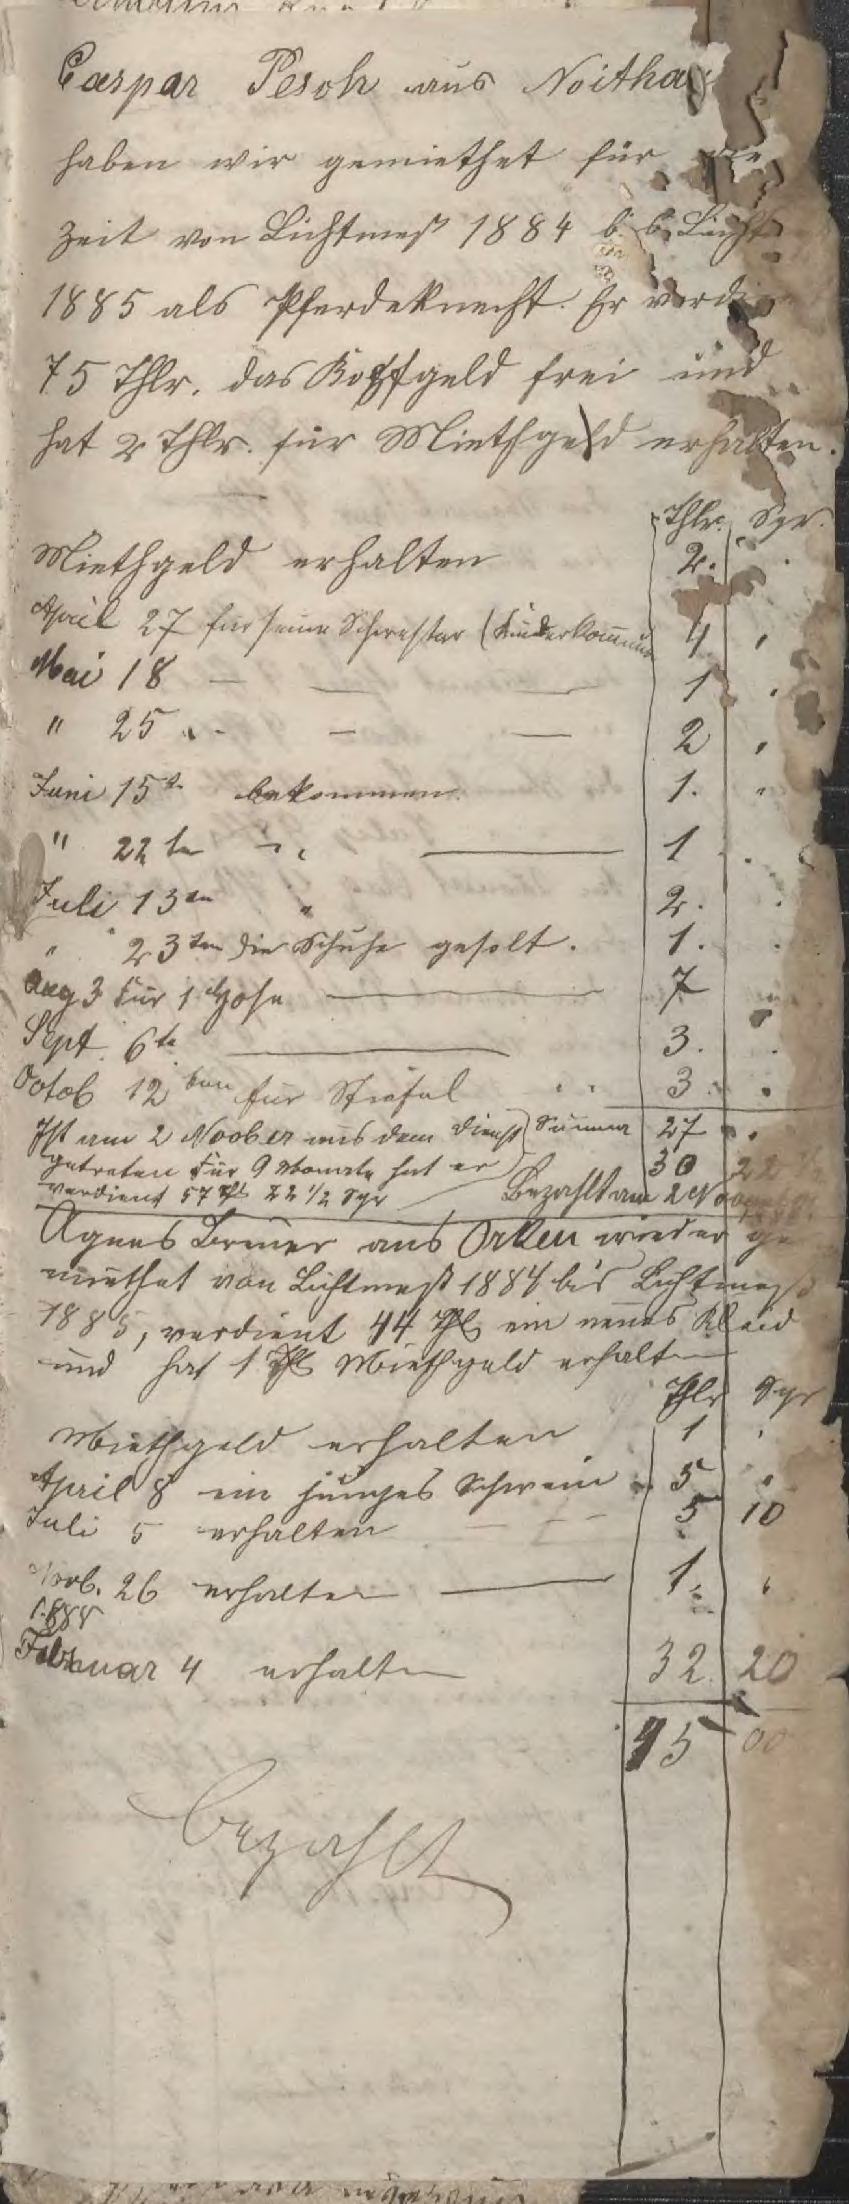 Caspar Pesch aus Noitha
haben wir gemiethet für die
Zeit von Lichtmeß 1884 b. b. Licht
1885 als Pferdeknecht. Er verdi
75 Thlr. das Kopfgeld frei und
hat 2 Thlr. für Miethgeld erhalten.
Thlr. Sgr.
Miethgeld erhalten 2. "
April 27 für seine Schwester (Kinderkommun 4 "
Mai 18 — — — 1 "
" 25 " — — 2 "
Juni 15t. bekommen 1. "
" 22te " — 1 "
Juli 13en " 2. "
" 23ten die Schuhe gesolt. 1. "
Aug 3 für 1 Hose — 7
Sept. 6te — 3. "
Octob 12ten für Stiefel " " 3 "
Ist am 2 Noober aus dem Dienst Summa 27 "
getreten für 9 Monate hat er 30 22
verdient 57 Thl 22 1/2 Sgr Bezahlt am 2 Nov
Agnes Breuer aus Orken wieder ge
miethet von Lichtmeß 1884 bis Lichtmeß
1885, verdient 44 Thl ein neues Kleid
und hat 1 Thl Miethgeld erhalten
Thlr Sgr
Miethgeld erhalten 1 "
April 8 ein junges Schwein " 5 "
Juli 5 erhalten — — 5 10
Nob. 26 erhalten — 1. "
1885
Februar 4 erhalten 32. 20
45 00
bezahlt